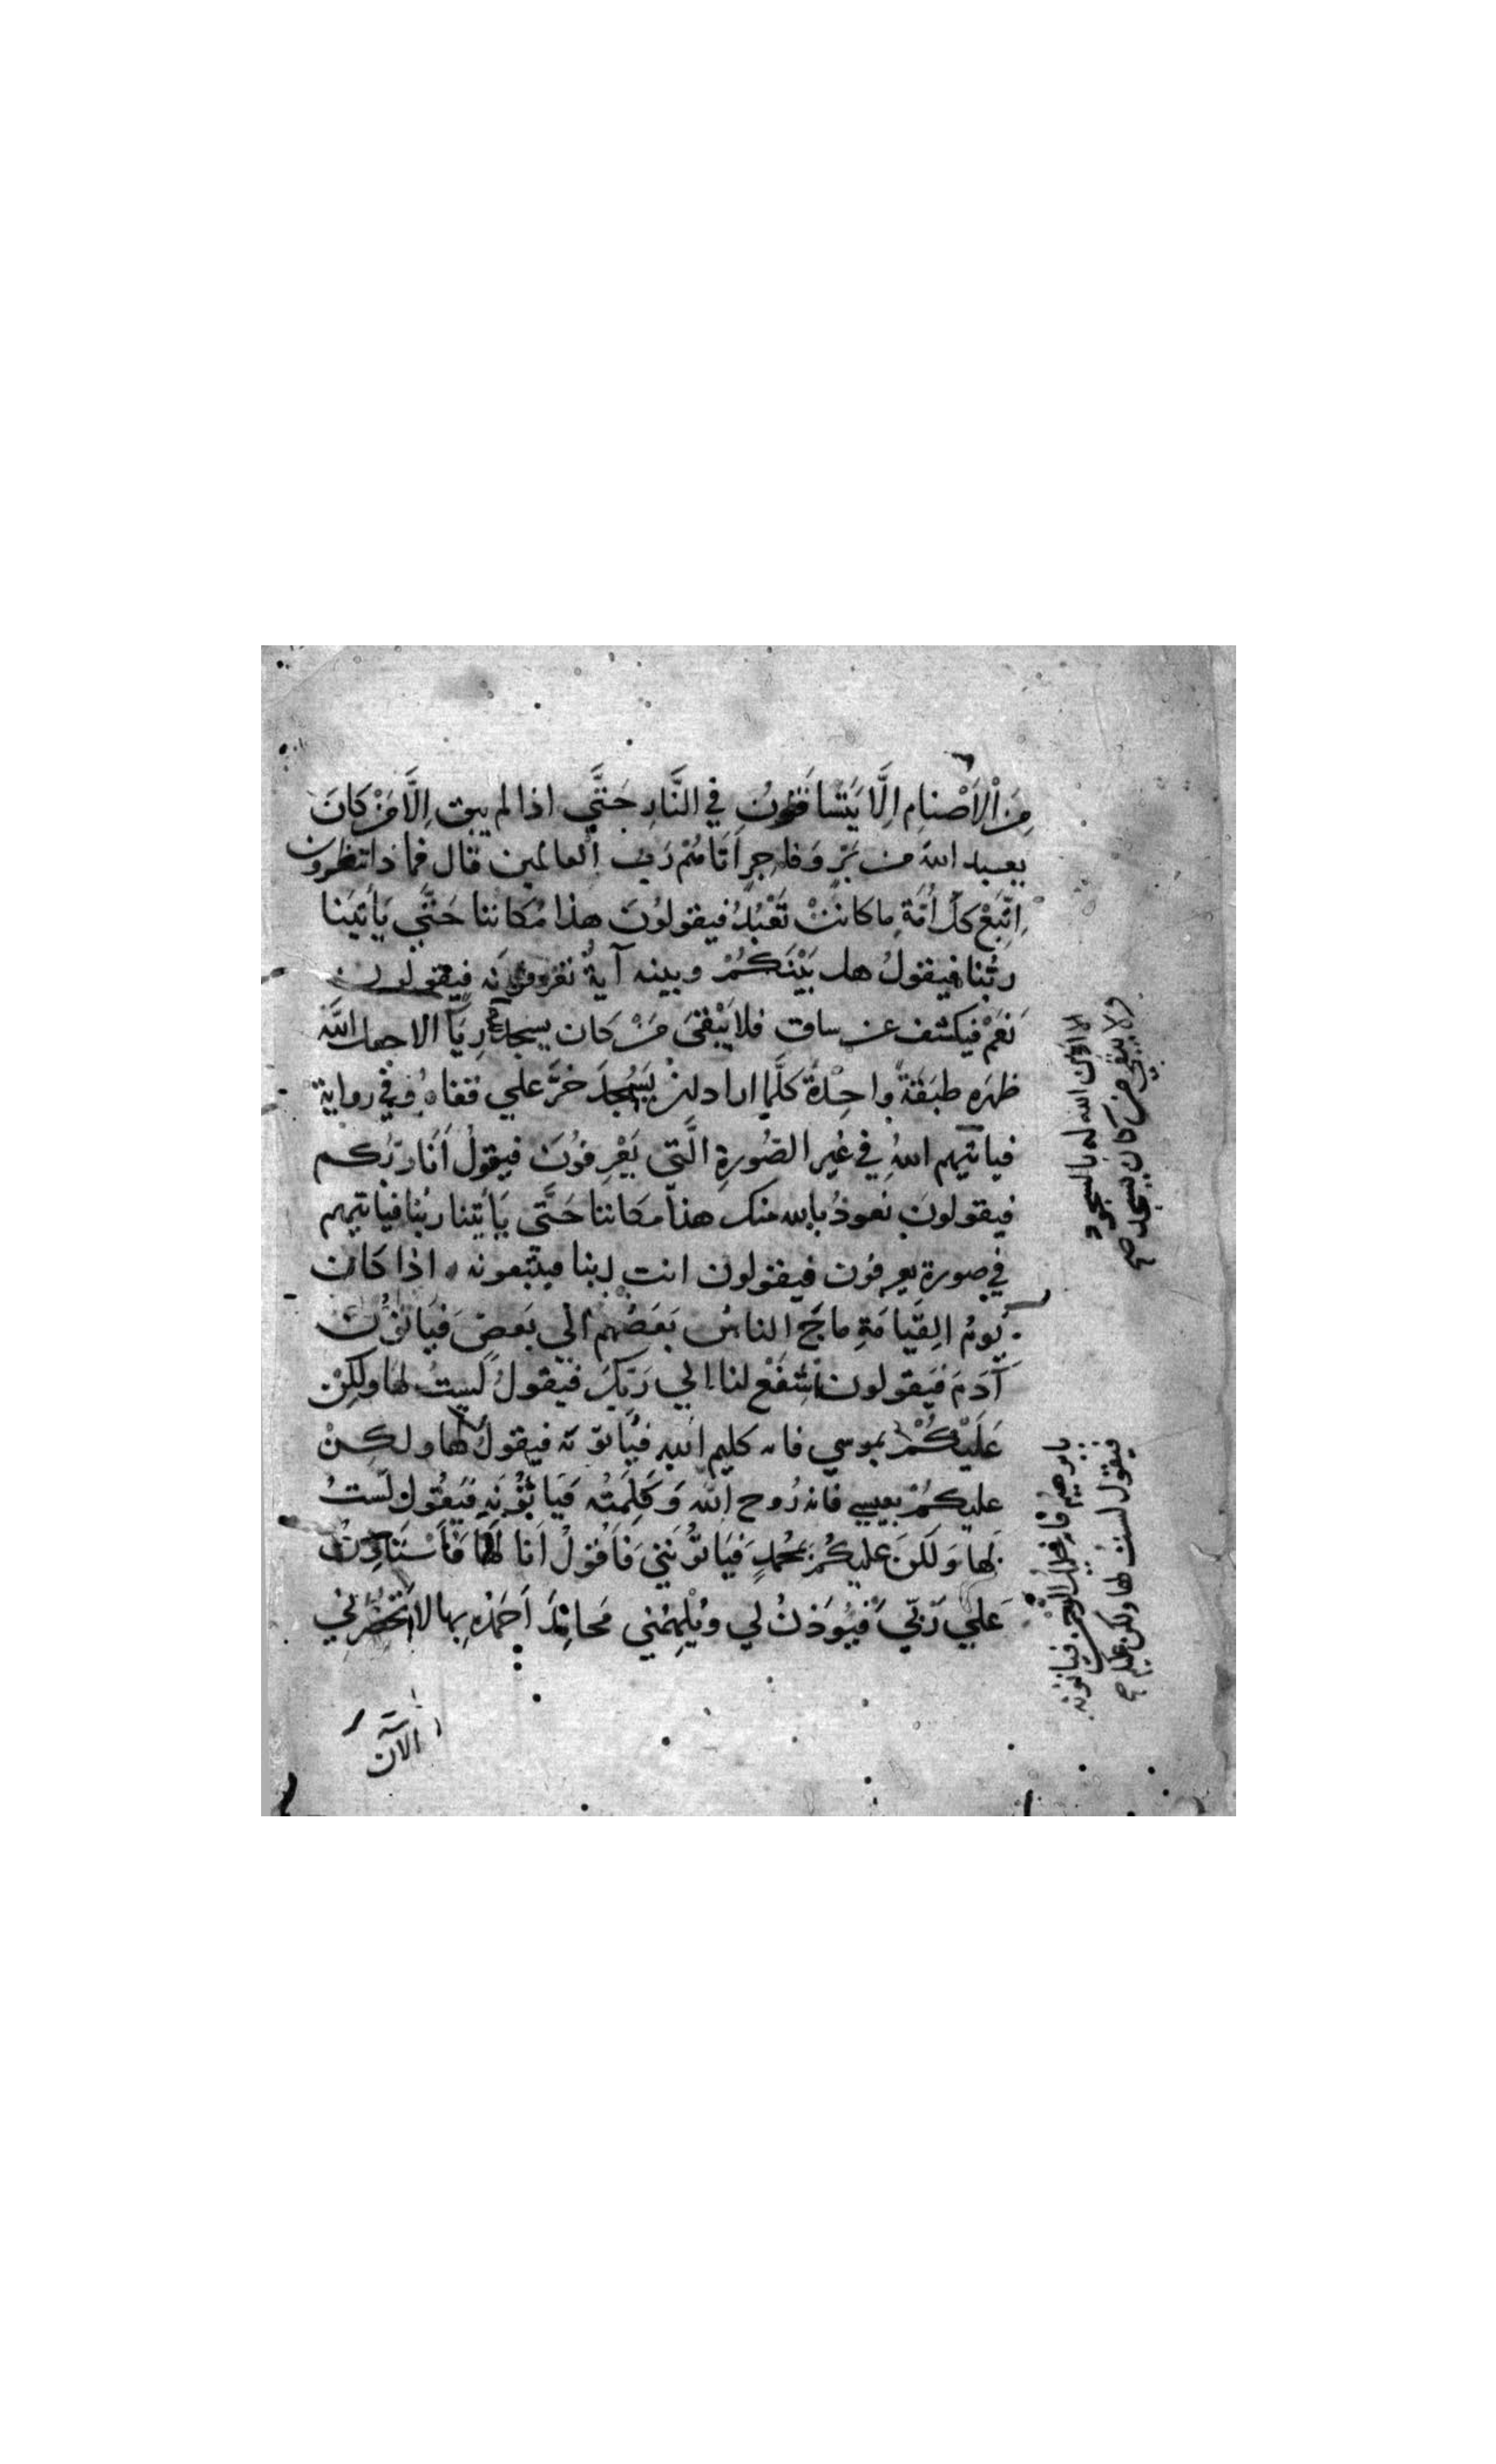 مِنَ الْأَصْنامِ اِلَّا يَتَسَاقَطُونَ فِي النَّارِ حَتَّي اذا لم يبق اِلَّا مَنْ كَانَ
يعبد الله من بَرٍّ وَفاجِرٍ اَتَاهُمْ رَبُّ العالمين قال فما ذا تنظرون
اِتَّبَعْ كلُّ أُمَّةٍ ما كانَتْ تَعْبُدُ فيقولُونَ هذا مَكاننا حَتَّي يَأْتِيَنا
ربُّنا فيقولُ هل بَيْنَكُمْ وبينه آيةٌ تعرفونَه فيقولون
نَعَمْ فيكشف عن ساق فلا يَبْقَي مَنْ كان يسجد رِيَآءً الا جعل اللهُ
ظهره طبَقَةً واحِدَةً كلَّما اراد انْ يَسْجُدَ خرَّ علي قفاهُ وفي رواية
فياتيهم اللهُ فِي غير الصُورةِ الَّتي يَعْرِفُونَ فيقولُ أَنَا ربُّكم
فيقولونَ نَعوذُ بالله منك هذا مكاننا حَتَّي يَأْتِيَنا ربُّنا فياتيهم
في صورةٍ يعرفون فيقولون انت ربنا فيتبعونه اذا كان
يَومُ الِقيَامَةِ ماجَ الناسُ بَعضُهم الي بَعضٍ فَيَاتوُنَ
آدَمَ فَيَقولون اشْفَعْ لنا الي رَبِّكَ فيقولُ لَستُ لها ولكِنْ
عَلَيْكُمْ بموسي فانه كليم اللهِ فَيَاتُونَه فيقولُ لستُ لها ولكِنْ
عليكُمْ بعيسي فانه رُوح الله وَكَلِمَتُه فَيَاتُوْنَهِ فَيَقُولُ لَستُ
لها وَلَكن عليكُمْ بمُحمدٍ فَيَاتُونَنِي فَأَقولُ اَنَا لَهَا فَأَسْتَأْذِنُ
عَلي رَبِّي فَيُوذَنُ لي ويُلْهِمُني مَحامِدَ اَحمَدُه بِها لا تَحْضُرُني
الآن
ولا يبقي من كان يسجد
الا اذن الله له بالسجود
فيقول لستُ لها ولكن عليكم
بابرهيم فانه خليل الرحمن فياتونه